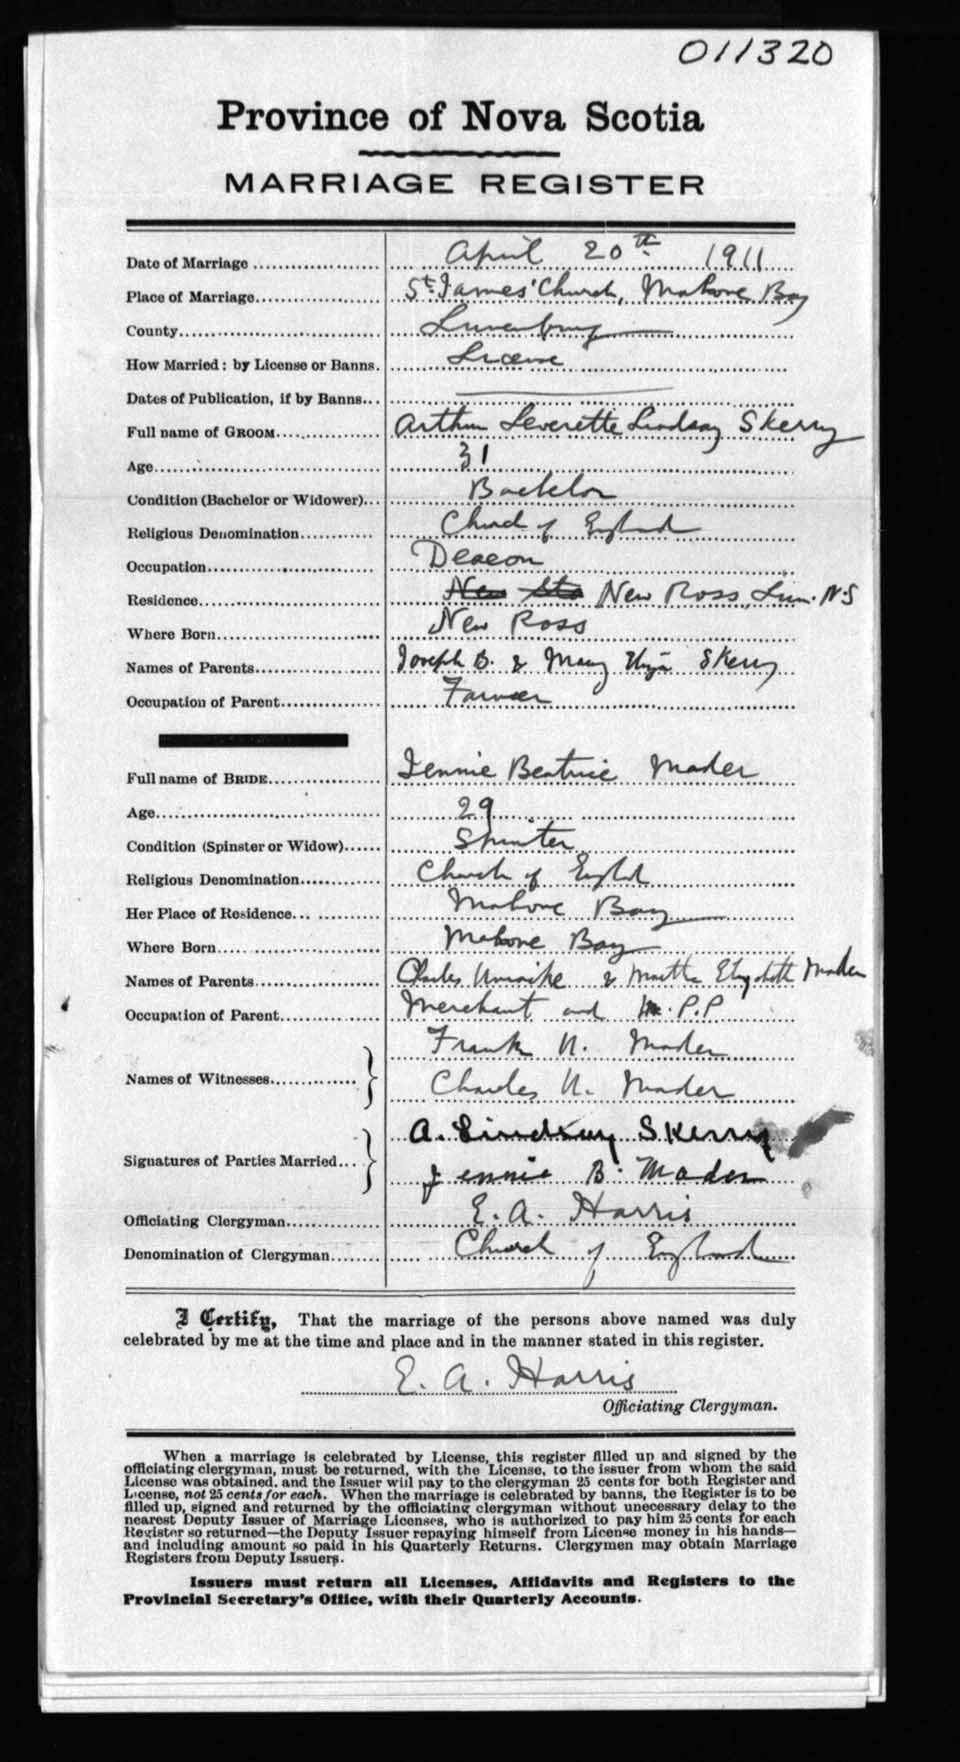 011320
Province of Nova Scotia
MARRIAGE REGISTER
Date of Marriage .................... April 20th 1911
Place of Marriage.................... St. James' Church, Mahone Bay
County.................... Lunenburg
How Married: by License or Banns. License
Dates of Publication, if by Banns...
Full name of GROOM.................... Arthur Leverette Lindsay Skerry
Age.................... 31
Condition (Bachelor or Widower)... Bachelor
Religious Denomination............ Church of England
Occupation.................... Deacon
Residence.................... New Ross, Lun. N.S
Where Born.................... New Ross
Names of Parents.................... Joseph B. & Mary Skerry
Occupation of Parent.................... Farmer
Full name of BRIDE.................... Jennie Beatrice Mader
Age.................... 29
Condition (Spinster or Widow)...... Spinster
Religious Denomination............ Church of England
Her Place of Residence... ............ Mahone Bay
Where Born.................... Mahone Bay
Names of Parents.................... Charles & Martha Elizabeth Mader
Occupation of Parent.................... Merchant and M.P.P
Frank U. Mader
Names of Witnesses..............
Charles U. Mader
A. Lindsay Skerry
Signatures of Parties Married...
Jennie B. Mader
Officiating Clergyman.................... E. A. Harris
Denomination of Clergyman........ Church of England
I Certify, That the marriage of the persons above named was duly
celebrated by me at the time and place and in the manner stated in this register.
E. A. Harris
Officiating Clergyman.
When a marriage is celebrated by License, this register filled up and signed by the
officiating clergyman, must be returned, with the License, to the issuer from whom the said
License was obtained, and the Issuer will pay to the clergyman 25 cents for both Register and
License, not 25 cents for each. When the marriage is celebrated by banns, the Register is to be
filled up, signed and returned by the officiating clergyman without unecessary delay to the
nearest Deputy Issuer of Marriage Licenses, who is authorized to pay him 25 cents for each
Register so returned—the Deputy Issuer repaying himself from License money in his hands—
and including amount so paid in his Quarterly Returns. Clergymen may obtain Marriage
Registers from Deputy Issuers.
Issuers must return all Licenses, Affidavits and Registers to the
Provincial Secretary's Office, with their Quarterly Accounts.